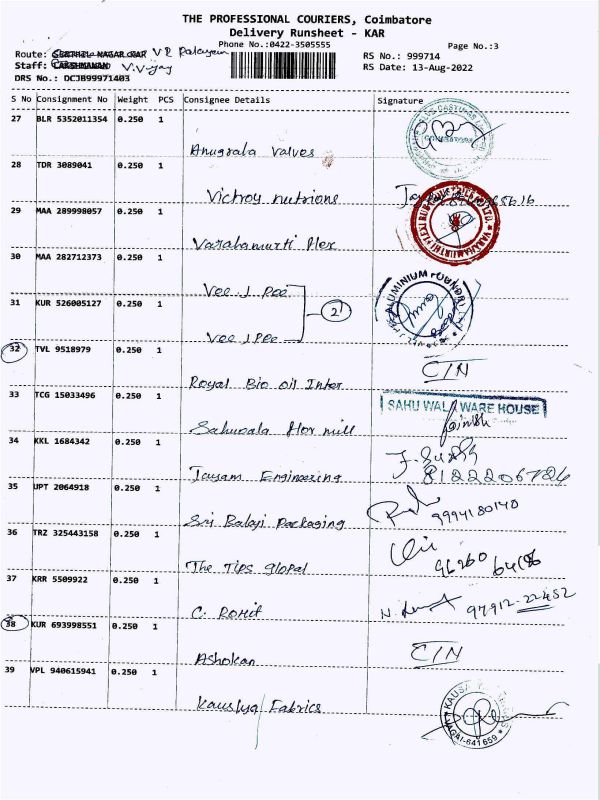 THE PROFESSIONAL COURIERS, Coimbatore
Delivery Runsheet - KAR
Phone No.:0422-3505555
Page No.:3
Route: SENTHIL NAGAR KAR VR Palayam
RS No.: 999714
Staff: LAKSHMANAN V. Vijay
RS Date: 13-Aug-2022
DRS No.: DCJB99971403
S No Consignment No Weight PCS Consignee Details Signature
27 BLR 5352011354 0.250 1
Anugrala Valves
28 TDR 3089041 0.250 1
Victroy nutrions
29 MAA 289998057 0.250 1
Varahamurti Flex
30 MAA 282712373 0.250 1
Vee J Pee
ALUMINIUM FOUNDRI
31 KUR 526005127 0.250 1
2
Vee J Pee
32 TVL 9518979 0.250 1
C/N
Royal Bio oil Inter
33 TCG 15033496 0.250 1
SAHUWALA WARE HOUSE
Sahuwala flor mill
34 KKL 1684342 0.250 1
Jayam Engineering
8122206726
35 UPT 2064918 0.250 1
Sri Balaji Packaging
9994180140
36 TRZ 325443158 0.250 1
The Tips Glopal
96260
37 KRR 5509922 0.250 1
C. Rohit
97912-22452
38 KUR 693998551 0.250 1
C/N
Ashokan
39 VPL 940615941 0.250 1
Kauslya Fabrics
641659